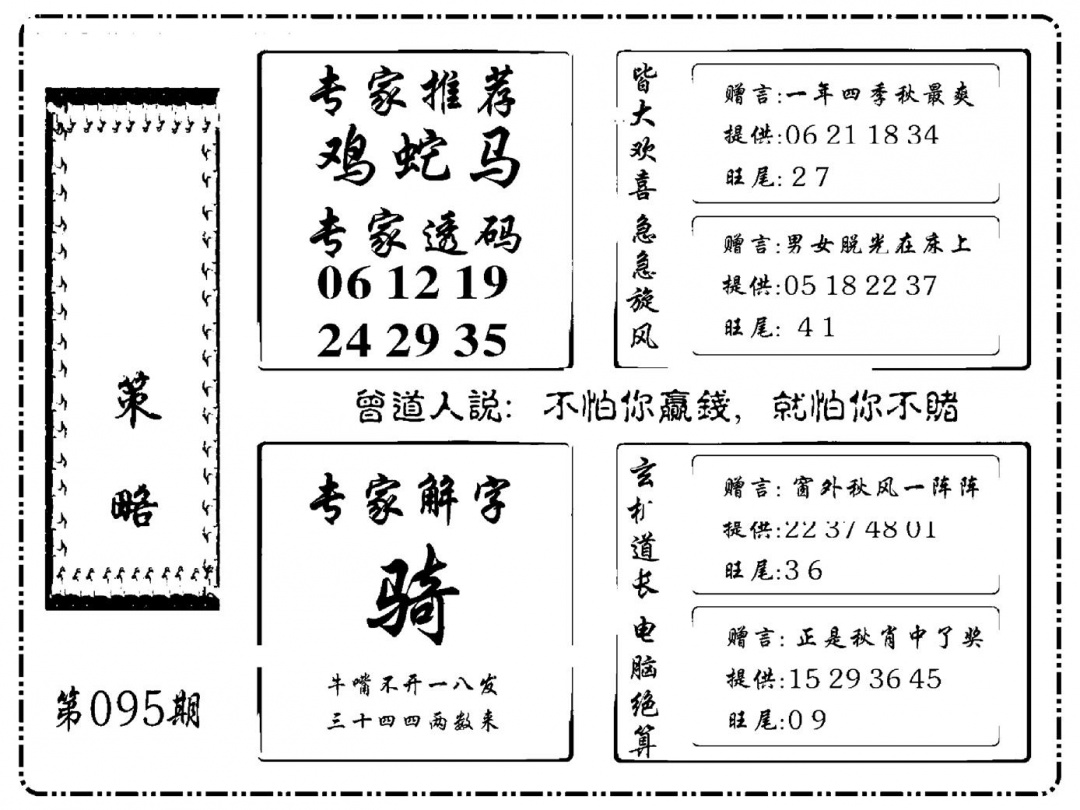 策略
第095期
专家推荐
鸡蛇马
专家透码
06 12 19
24 29 35
皆大欢喜
赠言:一年四季秋最爽
提供:06 21 18 34
旺尾:27
急急旋风
赠言:男女脱光在床上
提供:05 18 22 37
旺尾: 41
曾道人説: 不怕你贏錢, 就怕你不賭
专家解字
骑
牛嘴不开一八发
三十四四两数来
玄机道长
赠言: 窗外秋风一阵阵
提供:22 37 48 01
旺尾:36
电脑绝算
赠言: 正是秋肖中了奖
提供:15 29 36 45
旺尾:09